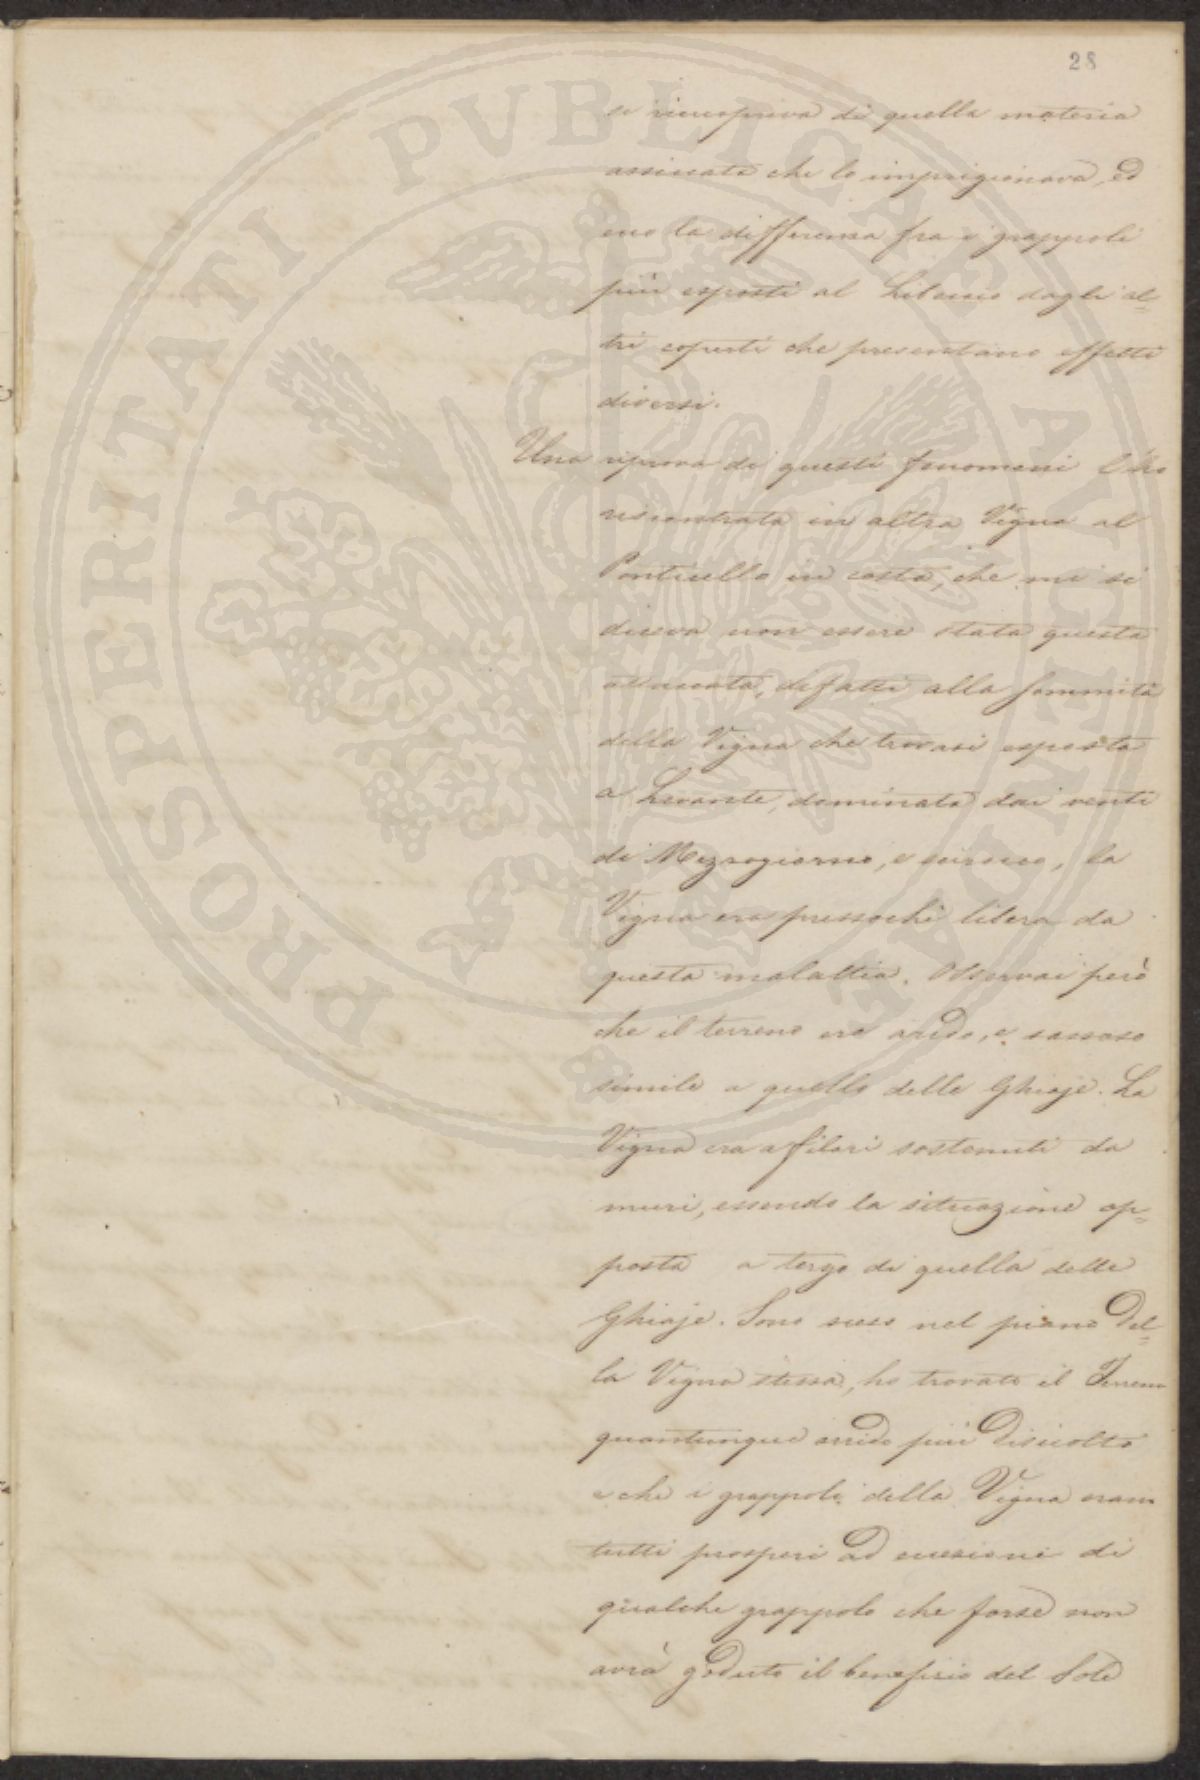 28
si ricopriva di quella materia
assiccata che lo imprigionava, ed
ecco la differenza fra i grappoli
più esposti al Libeccio dagli al=
tri coperti che presentano effetti
diversi.
Una riprova di questi fenomeni l'ho
riscontrata in altra Vigna al
Ponticello in costa, che mi si
diceva non essere stata questa
attaccata, difatti alla sommità
della Vigna che trovasi esposta
a Levante, dominata dai venti
di Mezzogiorno, e scirocco, la
Vigna era pressochè libera da
questa malattia. Osservai però
che il terreno era arido, e sassoso
simile a quello delle Ghiaje. La
Vigna era a filari sostenuti da
muri, essendo la situazione op=
posta a tergo di quella delle
Ghiaje. Sono sceso nel piano del=
la Vigna stessa, ho trovato il Terreno
quantunque arrido più disciolto
e che i grappoli della Vigna eran
tutti prosperi ad eccezione di
qualche grappolo che forse non
avrà goduto il benefizio del Sole
PROSPERITATI PVBLICAE AVGENDAE